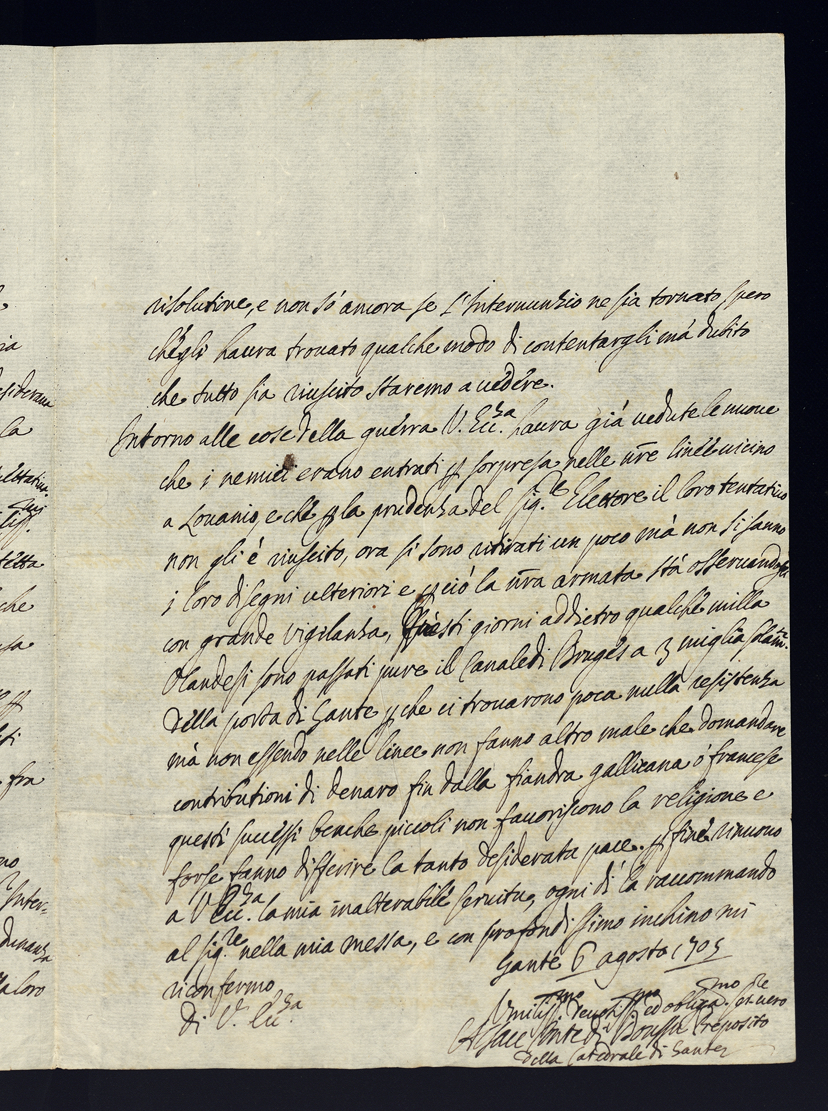 risolutione, e non só ancora se L'Internunzio ne sia tornato, spero
ch'egli haura trouato qualche modo di contentargli má dubito
che tutto sia riuscito staremo a uedére.
Intorno alle cose della guérra V. Ecc.za haura giá uedute le nuoue
che i nemici erano entrati p sorpresa nelle nre linée uicino
a Louanio, e ché p la prudenza del sig.re Elettore il loro tentatiuo
non gli é riuscito, ora si sono ritirati un poco má non si sanno
i loro disegni ulteriori e p ció la nra armata stá osseruandogli
con grande vigilanza, Questi giorni addietro qualché milla
Olandesi sono passati pure il Canale di Bruges a 3 miglia solam.te
della porta di Gante p che ci trouarono poca nulla resistenza
má non essendo nelle linee non fanno altro male che domandare
contributioni di denaro fin dalla fiandra gallicana ó francese
questi succéssi benche piccoli non fauoriscono la religione e
forse fanno differire la tanto desiderata pace. p finé rinuouo
a V Ecc.za la mia inalterabilé seruitu, ogni dí la raccommando
al sig.re nella mia messa, e con profondissimo inchino mi
riconfermo
di V. Ecc.za
Gante 6 agosto 1705
Vmiliss.mo deuotiss.mo ed obligat.mo seruo
Alsace Conte di Boussu Preposito
della Catedrale di Gante
ria
desideraua
la
che
sa
p
ti
fra
no
Inter=
loro